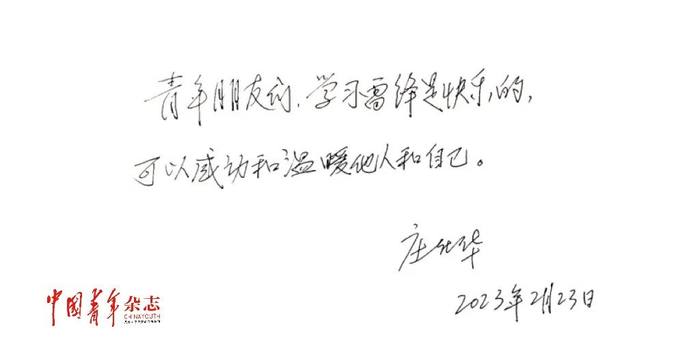 青年朋友们，学习雷锋是快乐的，
可以感动和温暖他人和自己。
庄仕华
2023年2月23日
中国青年杂志
CHINA YOUTH